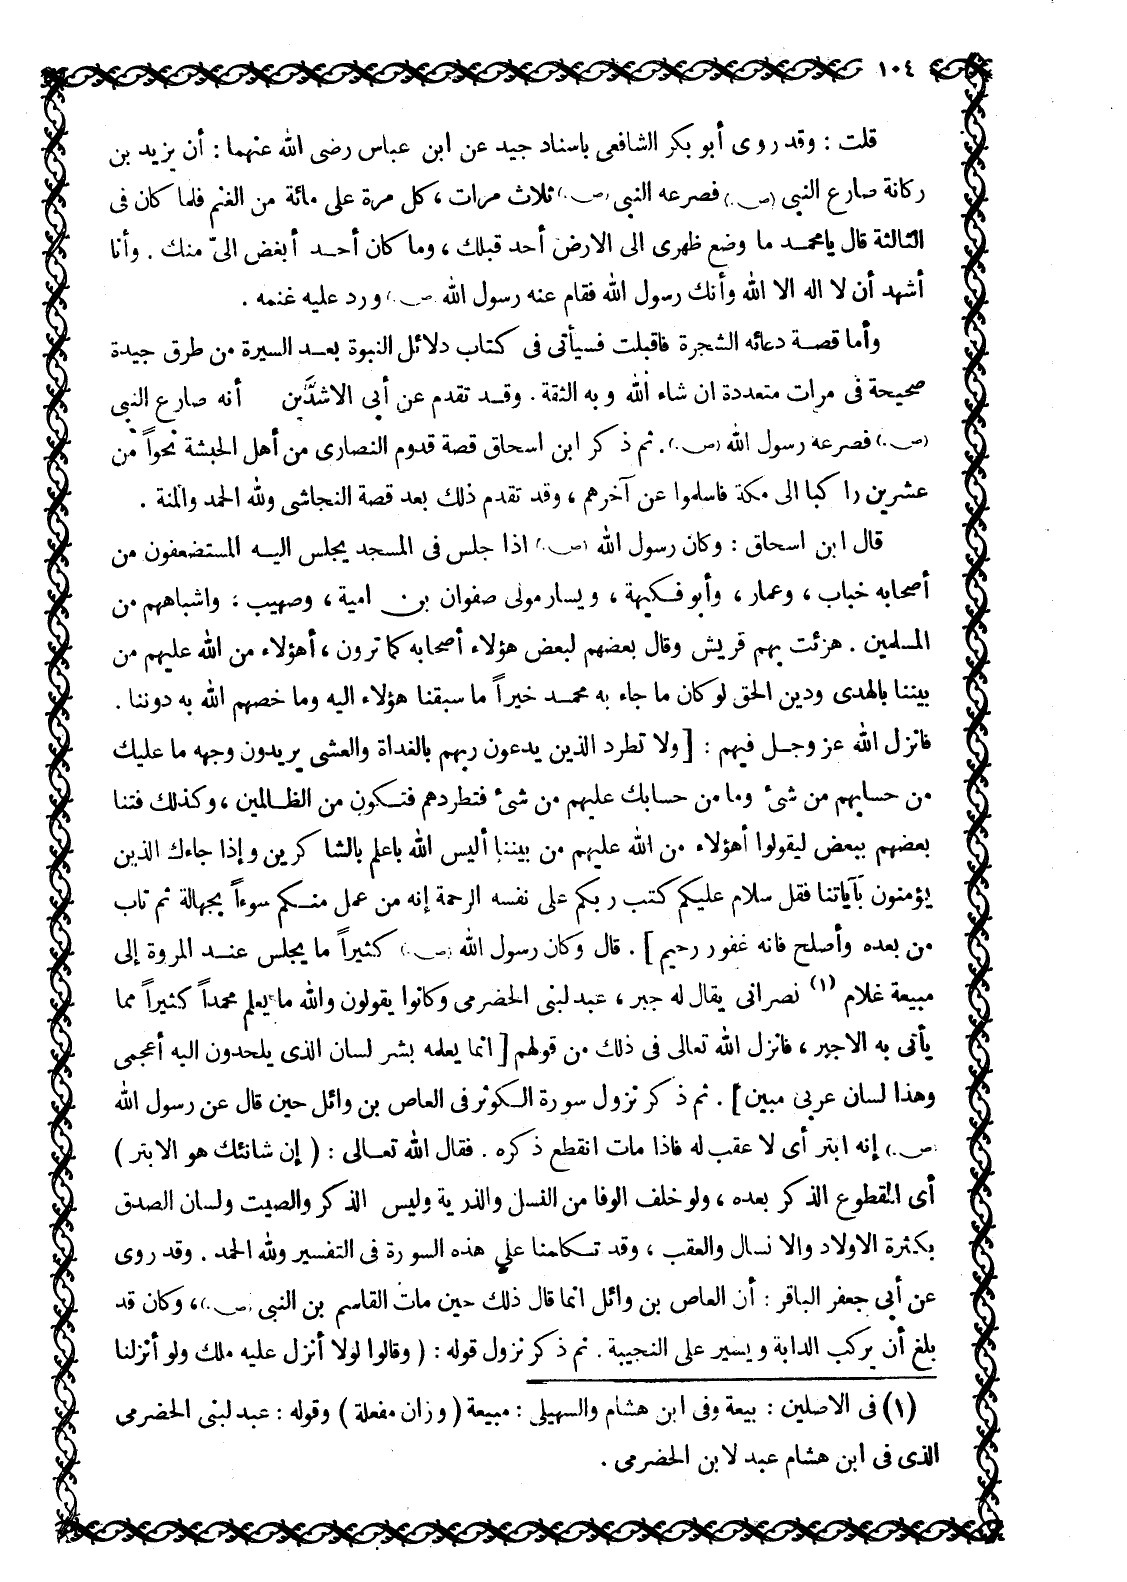 ١٠٤
قلت : وقد روى أبو بكر الشافعى باسناد جيد عن ابن عباس رضى الله عنهما : أن يزيد بن
ركانة صارع النبى (ص.) فصرعه النبى (ص.) ثلاث مرات ، كل مرة على مائة من الغنم فلما كان فى
الثالثة قال يا محمد ما وضع ظهرى الى الارض أحد قبلك ، وما كان أحد أبغض الىّ منك . وأنا
أشهد أن لا اله الا الله وأنك رسول الله فقام عنه رسول الله (ص.) ورد عليه غنمه .
وأما قصة دعائه الشجرة فاقبلت فسيأتى فى كتاب دلائل النبوة بعد السيرة من طرق جيدة
صحيحة فى مرات متعددة ان شاء الله وبه الثقة . وقد تقدم عن أبى الاشدَّين أنه صارع النبى
(ص.) فصرعه رسول الله (ص.) . ثم ذكر ابن اسحاق قصة قدوم النصارى من أهل الحبشة نحواً من
عشرين راكبا الى مكة فاسلموا عن آخرهم ، وقد تقدم ذلك بعد قصة النجاشى ولله الحمد والمنة .
قال ابن اسحاق : وكان رسول الله (ص.) اذا جلس فى المسجد يجلس اليه المستضعفون من
أصحابه خباب ، وعمار ، وأبو فكيهة ، ويسار مولى صفوان بن امية ، وصهيب : واشباههم من
المسلمين . هزئت بهم قريش وقال بعضهم لبعض هؤلاء أصحابه كما ترون ، أهؤلاء من الله عليهم من
بيننا بالهدى ودين الحق لو كان ما جاء به محمد خيراً ما سبقنا هؤلاء اليه وما خصهم الله به دوننا .
فانزل الله عز وجل فيهم : [ ولا تطرد الذين يدعون ربهم بالغداة والعشى يريدون وجهه ما عليك
من حسابهم من شئ وما من حسابك عليهم من شئ فتطردهم فتكون من الظالمين ، وكذلك فتنا
بعضهم ببعض ليقولوا أهؤلاء من الله عليهم من بيننا أليس الله باعلم بالشاكرين وإذا جاءك الذين
يؤمنون بآياتنا فقل سلام عليكم كتب ربكم على نفسه الرحمة إنه من عمل منكم سوءاً بجهالة ثم تاب
من بعده وأصلح فانه غفور رحيم ] . قال وكان رسول الله (ص.) كثيراً ما يجلس عند المروة إلى
مبيعة غلام (١) نصرانى يقال له جبر ، عبد لبنى الحضرمى وكانوا يقولون والله ما يعلم محمداً كثيراً مما
يأتى به الا جبر ، فانزل الله تعالى فى ذلك من قولهم [ انما يعلمه بشر لسان الذى يلحدون اليه أعجمى
وهذا لسان عربى مبين ] . ثم ذكر نزول سورة الكوثر فى العاص بن وائل حين قال عن رسول الله
(ص.) إنه ابتر أى لا عقب له فاذا مات انقطع ذكره . فقال الله تعالى : ( إن شانئك هو الابتر )
أى المقطوع الذكر بعده ، ولو خلف الوفا من النسل والذرية وليس الذكر والصيت ولسان الصدق
بكثرة الاولاد والانسال والعقب ، وقد تكلمنا على هذه السورة فى التفسير ولله الحمد . وقد روى
عن أبى جعفر الباقر : أن العاص بن وائل انما قال ذلك حين مات القاسم بن النبى (ص.) ، وكان قد
بلغ أن يركب الدابة ويسير على النجيبة . ثم ذكر نزول قوله : ( وقالوا لولا أنزل عليه ملك ولو أنزلنا
(١) فى الاصلين : بيعة وفى ابن هشام والسهيلى : مبيعة ( وزان مفعلة ) وقوله : عبد لبنى الحضرمى
الذى فى ابن هشام عبد لابن الحضرمى .